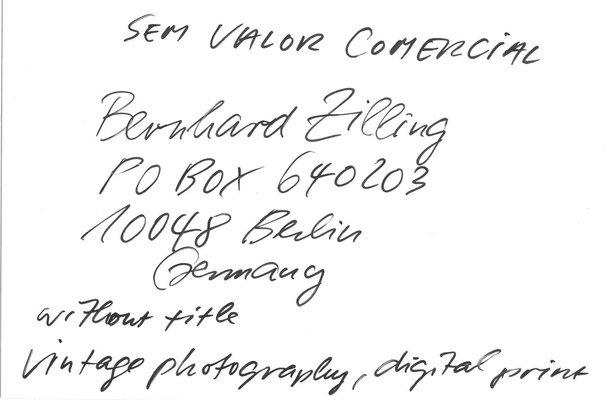 SEM VALOR COMERCIAL
Bernhard Zilling
PO BOX 640203
10048 Berlin
Germany
without title
vintage photography, digital print